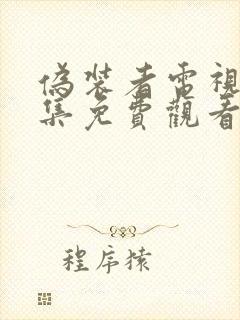 偽裝者電視
集免費觀看
程序猿